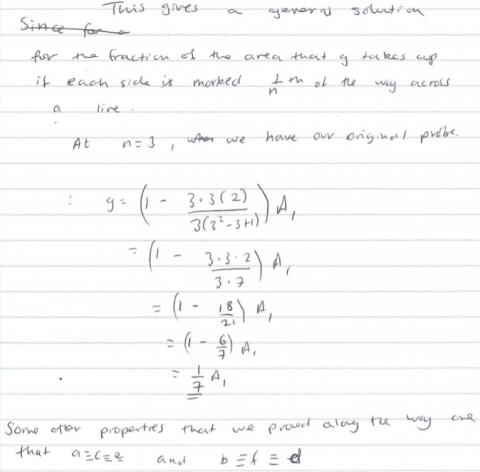 This gives a general solution
Since for a
for the fraction of the area that g takes up
if each side is marked 1/n th of the way across
a line.
At n=3, when we have our original probe.
∴ g = (1 - 3·3(2) / 3(3²-3+1)) A₁
= (1 - 3·3·2 / 3·7) A₁
= (1 - 18/21) A₁
= (1 - 6/7) A₁
= 1/7 A₁
Some other properties that we proved along the way are
that a≡c≡e and b≡f≡d